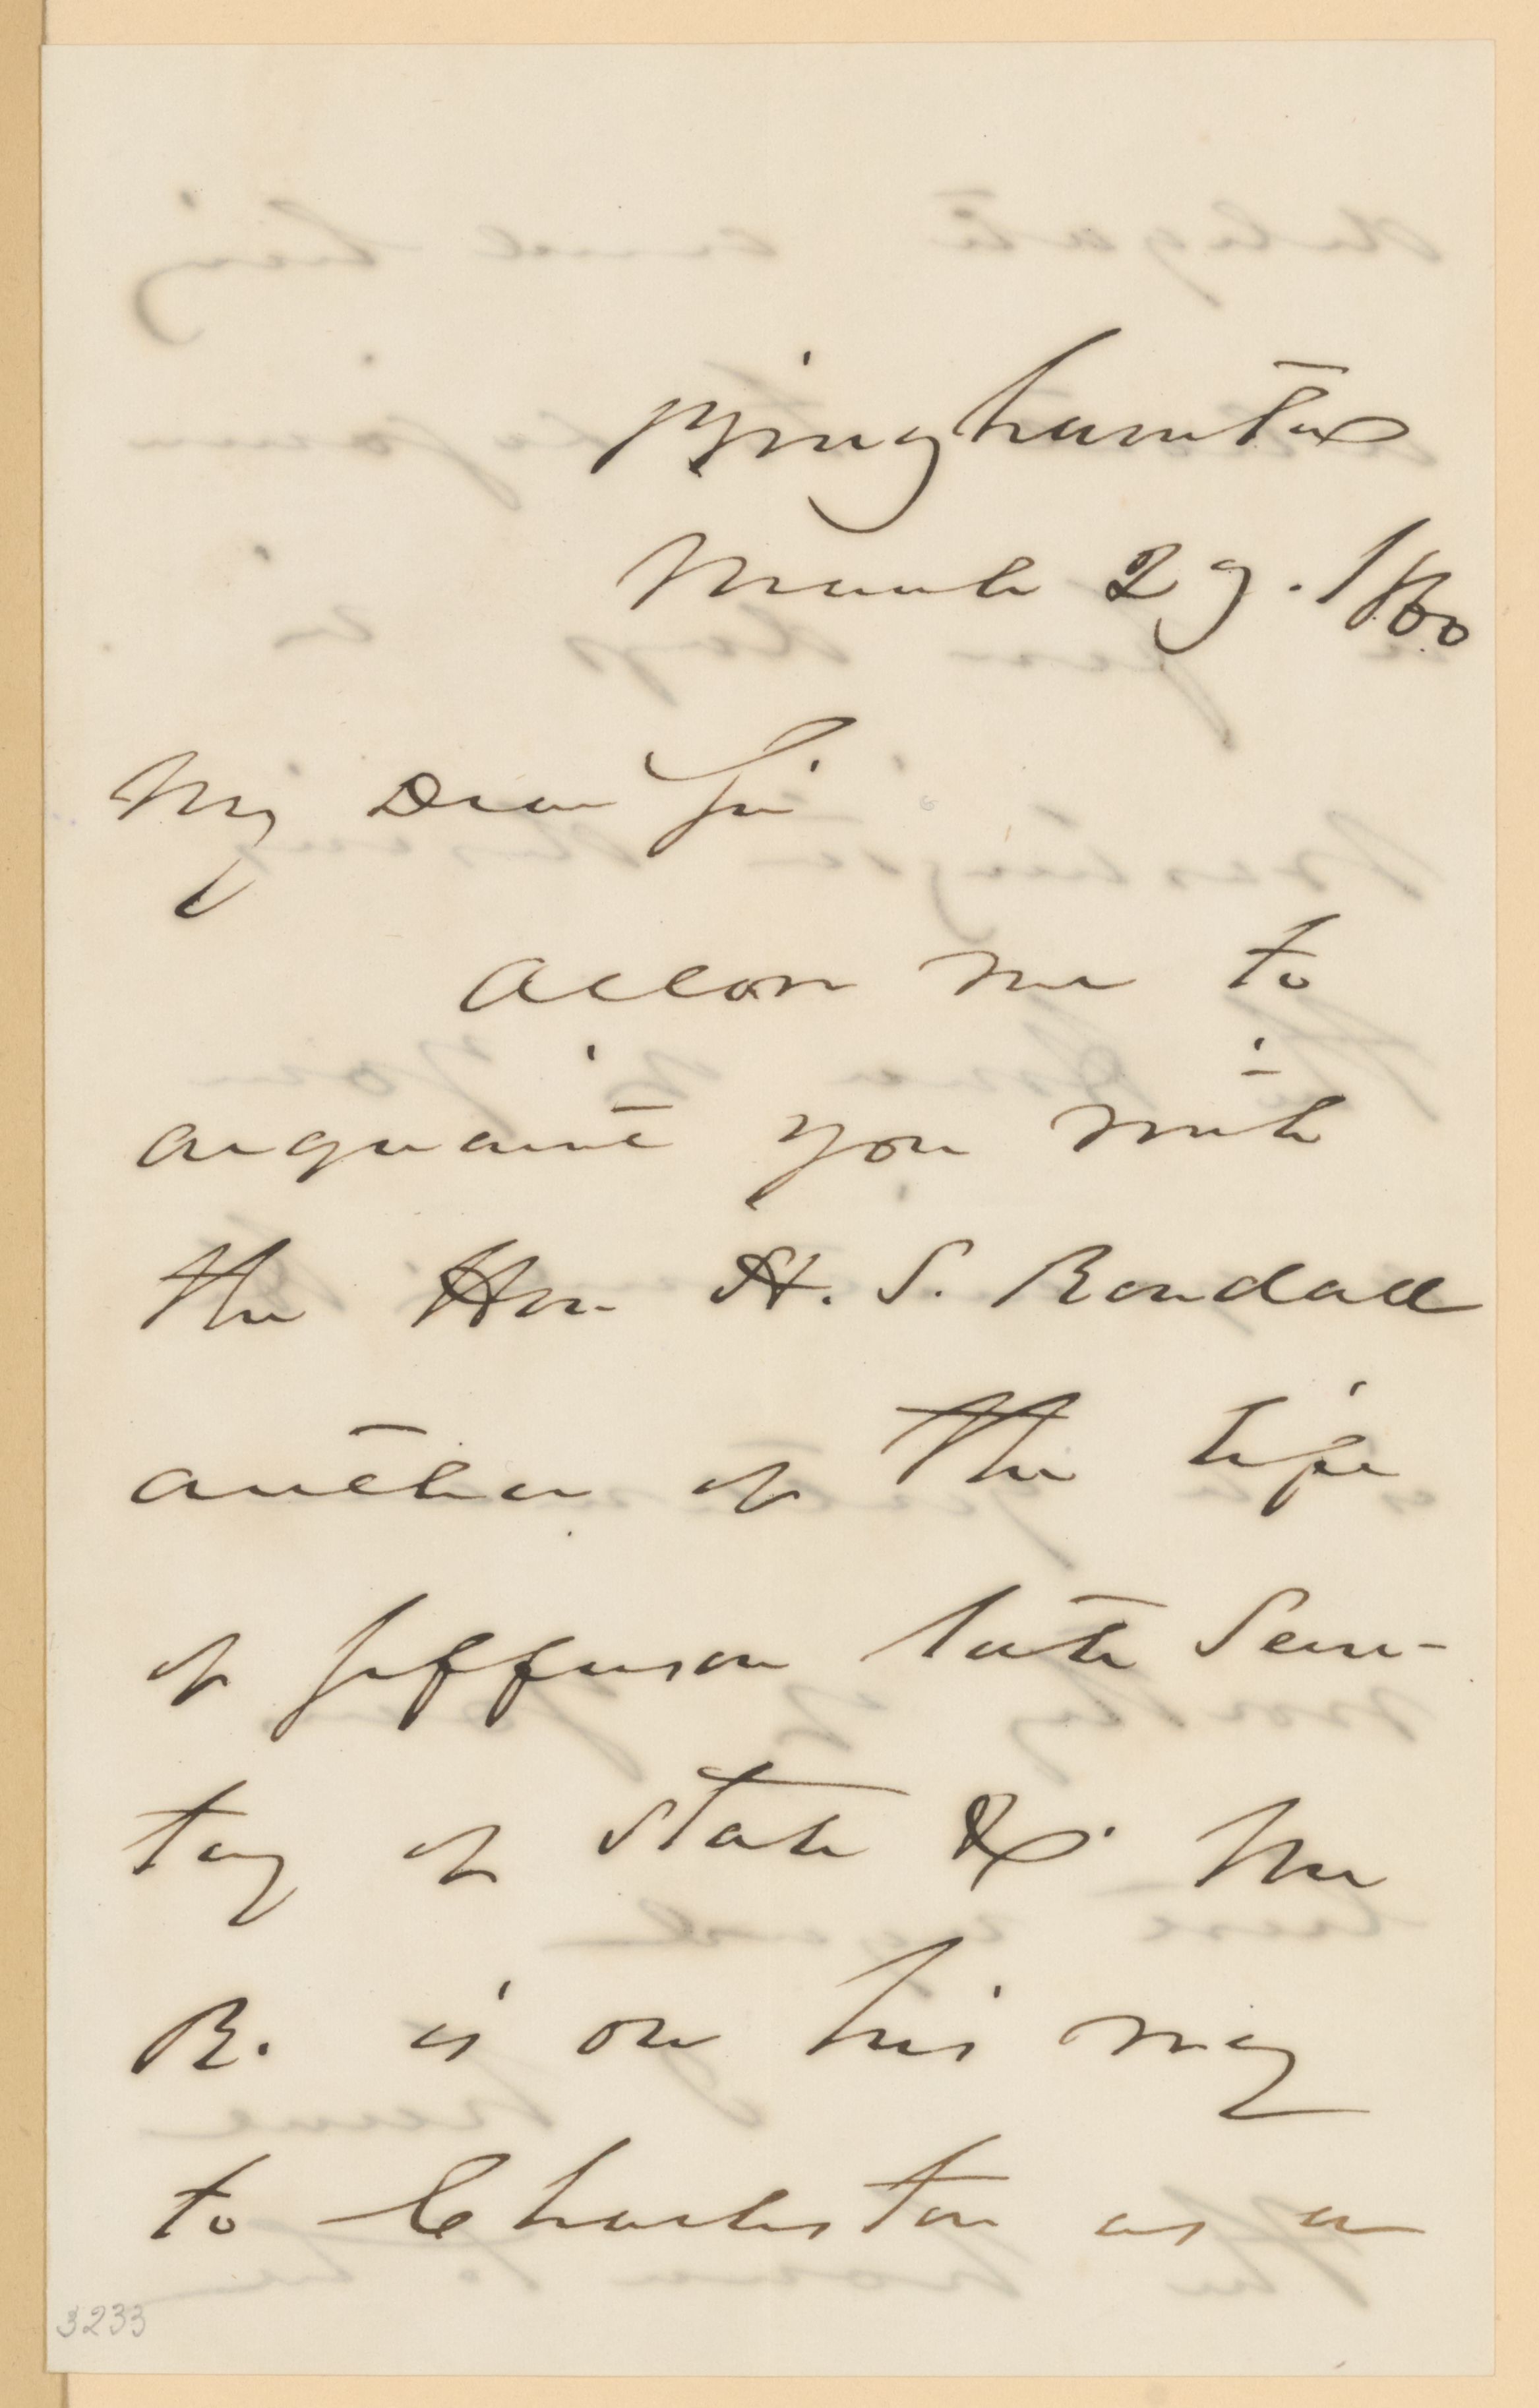 Binghamton
March 29. 1860
My Dear Sir
Allow me to
acquaint you with
the Hon H. S. Randall
author of the Life
of Jefferson late Secre-
tary of State &. Mr
R. is on his way
to Charleston as a
3233